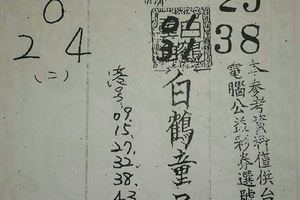 0
2 4
(二)
25
38
白鶴
01
31
白鶴童
港号
09.
15.
27.
32.
38.
43
本参考資料僅供台
電腦公益彩券選號